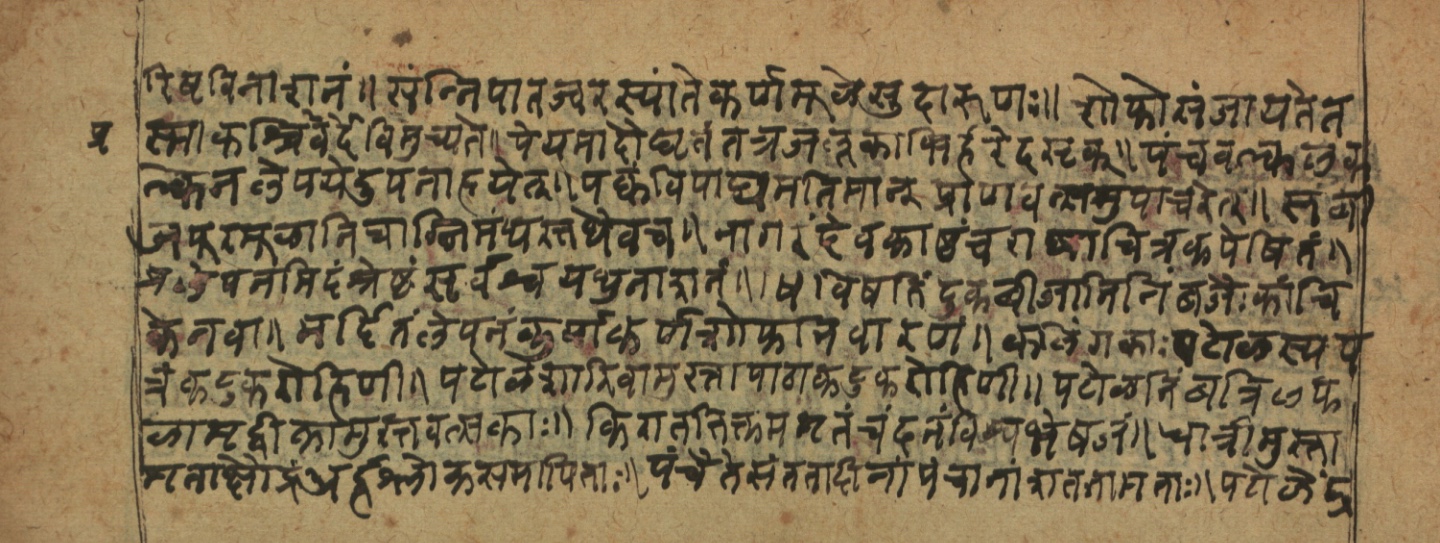 रिष्टविनाशनं॥ संन्निपातज्वरस्यांते कर्णमूलेसुदारूणः॥ शोफोसंजायतेत
प्र
स्माकश्चिदेर्दवविमुच्यते॥ पेयमादौघृतंतत्रजलूकाभिर्हरेदसृक्॥ पंचवल्कलक
ल्केनलेपयेदुपनाहयेत्॥ पक्कंविपाट्यमतिमान्प्राणवत्समुपाचरेत्॥
जपूरमूळानिचाग्निमंथस्तथैवच॥ नागरंदेवकाष्ठंचराष्णाचित्रकपेषितं॥
प्रलेपनमिदंश्रेष्ठं नाशनं॥
केनवा॥ मर्दितंलेपनंकुर्याकर्णशोफनिवारणं॥ कलिंगकाःपटोळस्यप
त्रंकटुकरोहिणी॥ पटोळंशारिवामुस्तापाठाकटुकरोहिणी॥ पटोळनिंबत्रिफ
ळामृद्वीकामुस्तवत्सकाः॥ किराततिक्तममृतंचंदनंविश्वभेषजं॥ धात्रीमुस्ता
मृताक्षौद्रंअर्द्धश्लोकसमापिताः॥ पंचैतेसंततादीनांपंचानांशातनामताः॥ पटोळेंद्र